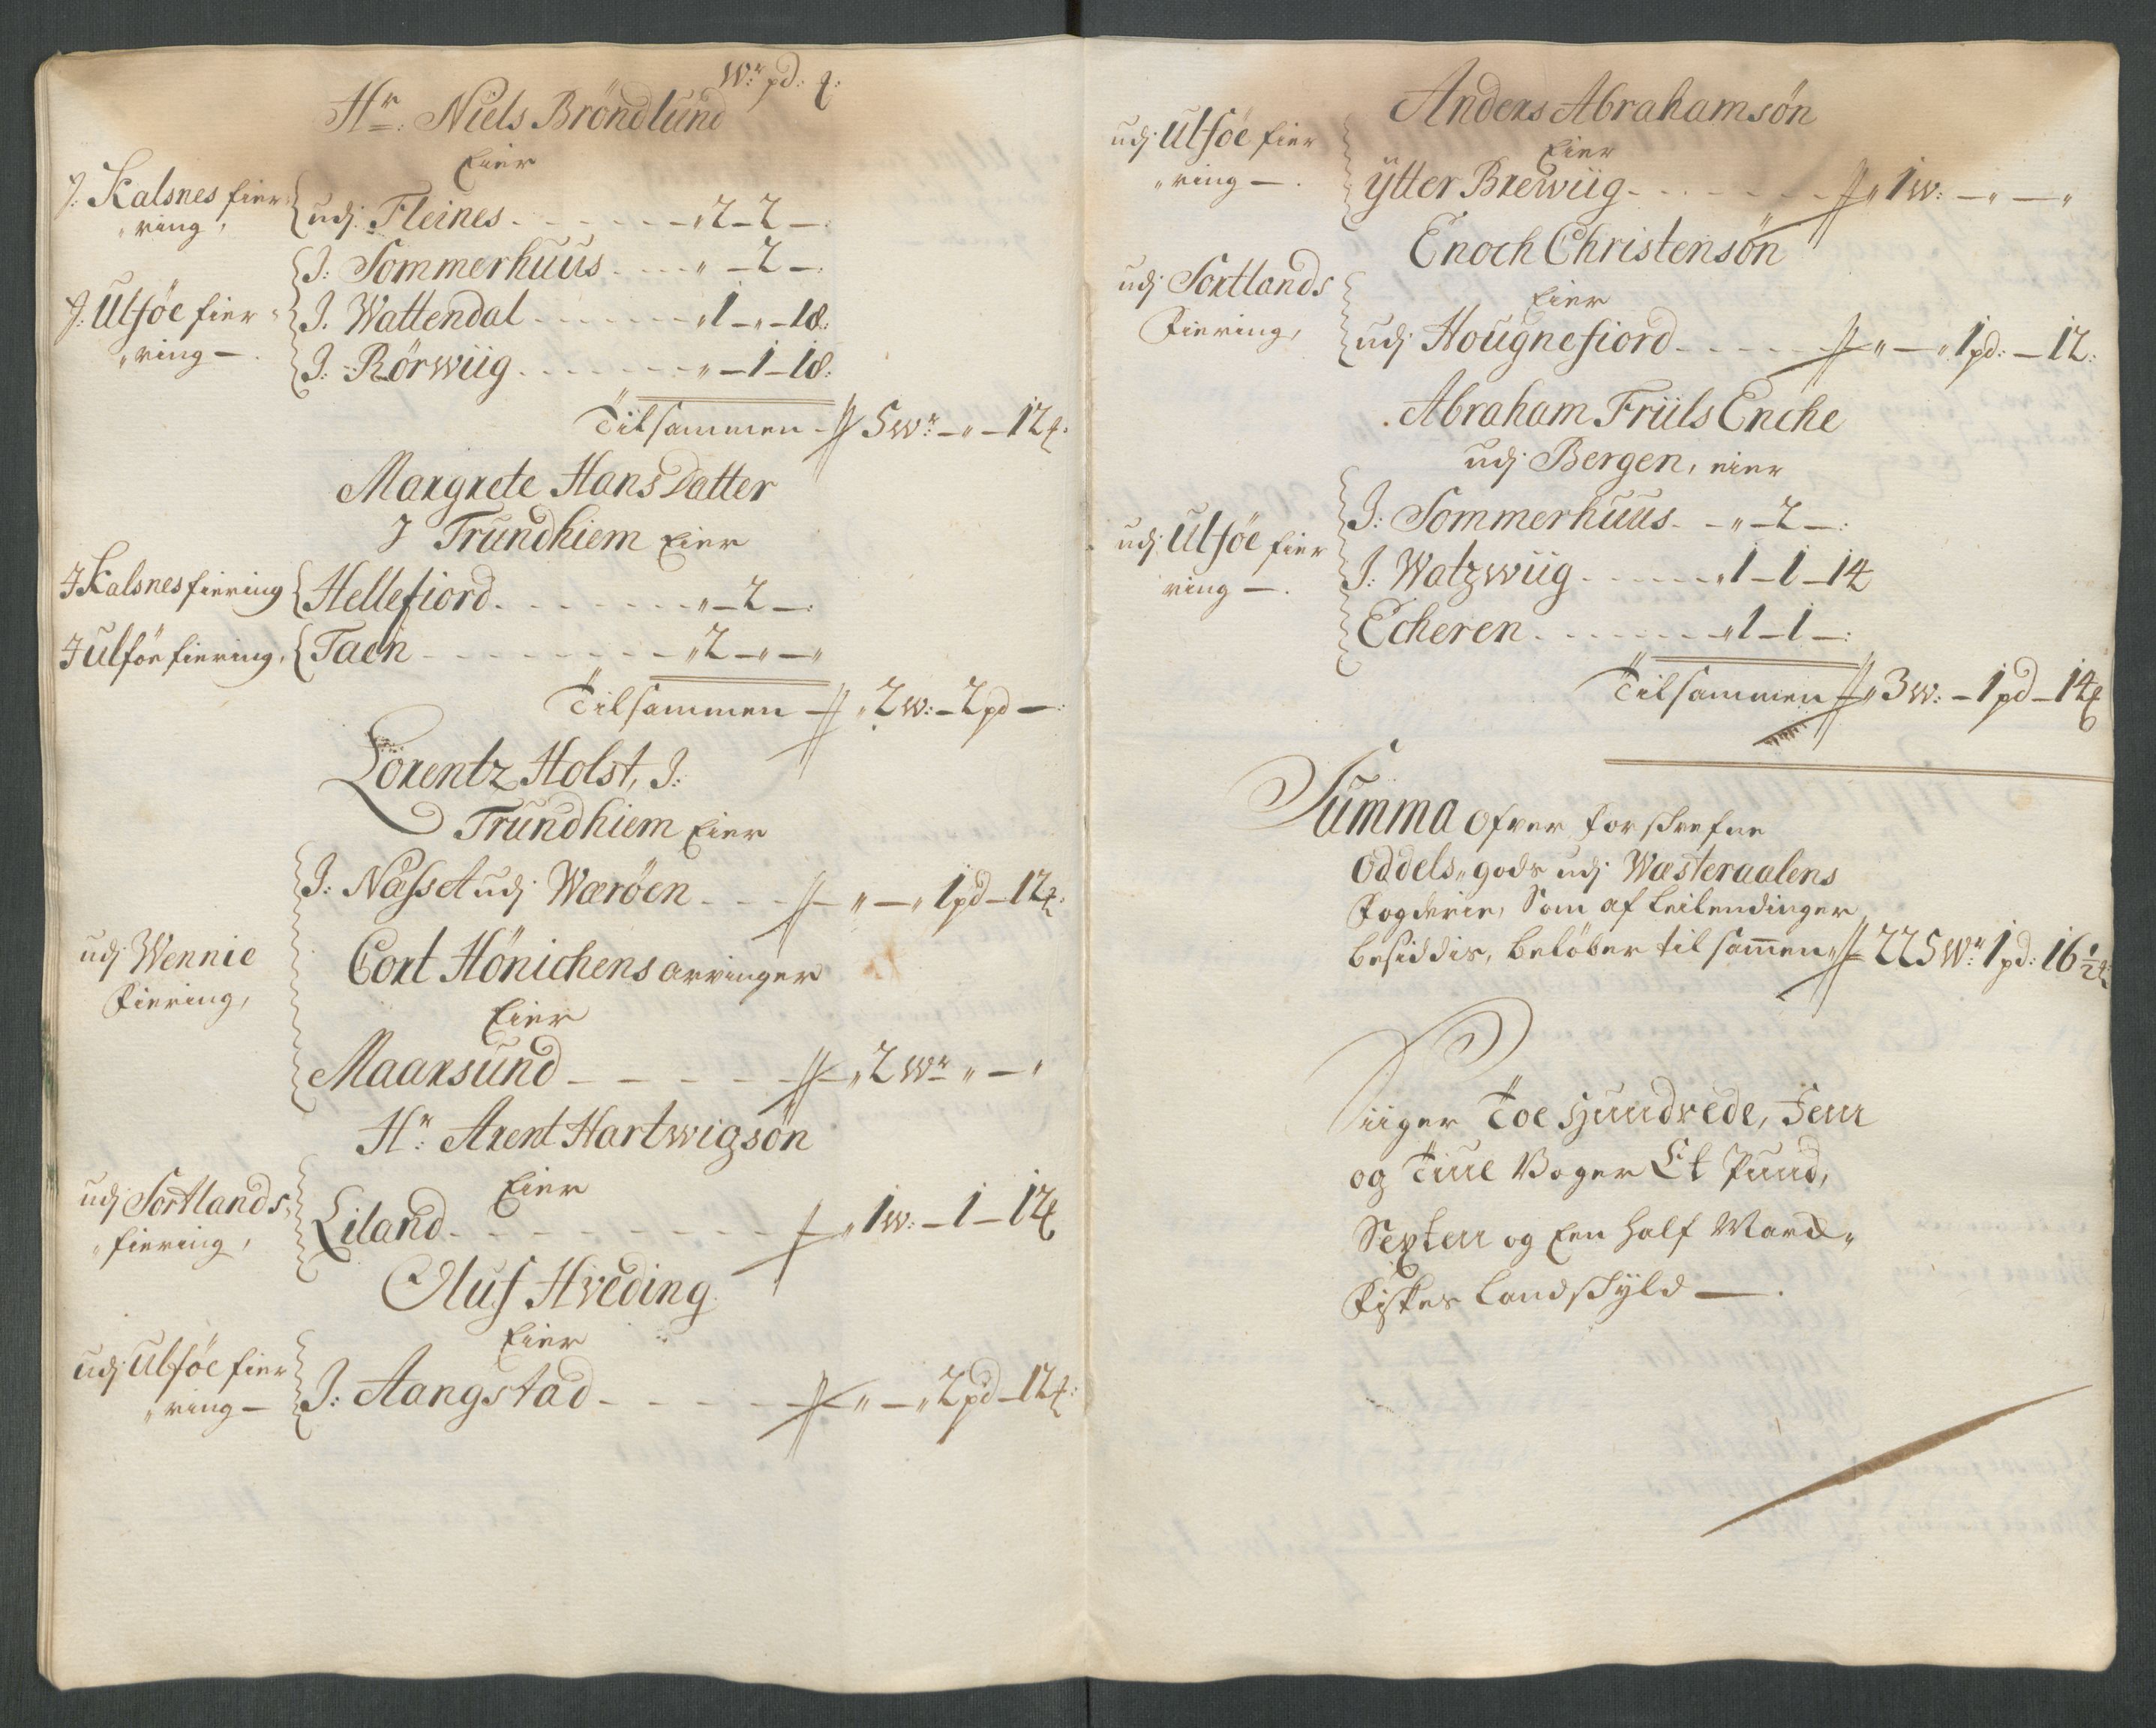 Wr: pd: ℔:
Hr: Niels Bröndlund
Eier
J: Skalsnes fier
ring,
udj Fleines - - - - - - „2 - 2 - :
J: Sommerhuus - - - „ - 2 - :
J: Ulföe fier
ring - .
J. Wattendal - - - - - „1 - „ - 18:
J: Rörwiig - - - - - - „ - 1 - 18:
Tilsammen - 5 wr: - „ - 12 ℔:
Margrete Hans Datter
J Trundhiem Eier
J Skalsnes fiering
Hellefiord - - - - - - „ - 2 - :
J Ulföe fiering,
Taen - - - - - - - „2 - „ - „
Tilsammen - „2 w: - 2 pd - :
Lorentz Holst, J:
Trundhiem Eier
J: Næsset udj Wæröen - - - „ - „ 1 pd - 12 ℔:
udj Wennie
Fiering,
Cort Hönichens arvinger
Eier
Maarsund - - - - - „2 wr „ - „
Hr: Arent Hartwigsön
Eier
udj Sortlands
fiering,
Liland - - - - - - - „1 w: - 1 - 12 ℔
Oluf Hveding
Eier
udj Ulföe fier
„ring -
J: Aangstad - - - - - „ - „ 2 pd - 12 ℔:
Anders Abrahamsön
udj Ulföe fier
„ring - .
Eier
Ytter Brewiig - - - - - - „ 1 w: - „ - „
Enoch Christensön
udj Sortlands
Fiering,
Eier
udj Hougnefiord - - - - - „ - „ 1 pd: - 12:
Abraham Friils Enche
udj Bergen, eier
J: Sommerhuus - - „ - 2 - :
udj Ulföe fier
ring - .
J: Watzwiig - - - - - „1 - 1 - 14
Echeren - - - - - - „1 - 1 - :
Tilsammen „3 w: - 1 pd - 14 ℔
Summa ofver forskrefne
Oddels„gods udj Wæsteraalens
Fogderie, Som af Leilendinger
besiddis, beløber til sammen 225 wr: 1 pd: 16 1/2 ℔
Siiger Toe Hundrede, Fem
og Tiue Voger Et Pund,
Sexten og Een half Mark„
Fiskes Landskyld - .